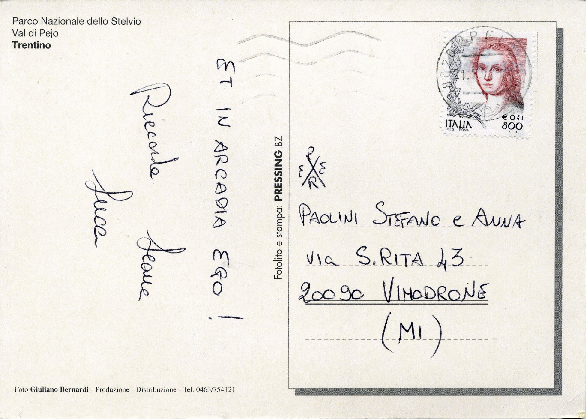 Parco Nazionale dello Stelvio
Val di Pejo
Trentino
ET IN ARCADIA EGO!
Riccardo
Luca
Fotolito e stampa: PRESSING BZ
ITALIA
800
P
E E
R
PAOLINI STEFANO e ANNA
VIA S. RITA 43
20090 VIMODRONE
(MI)
Foto Giuliano Bernardi - Produzione - Distribuzione - Tel. 0465/754121